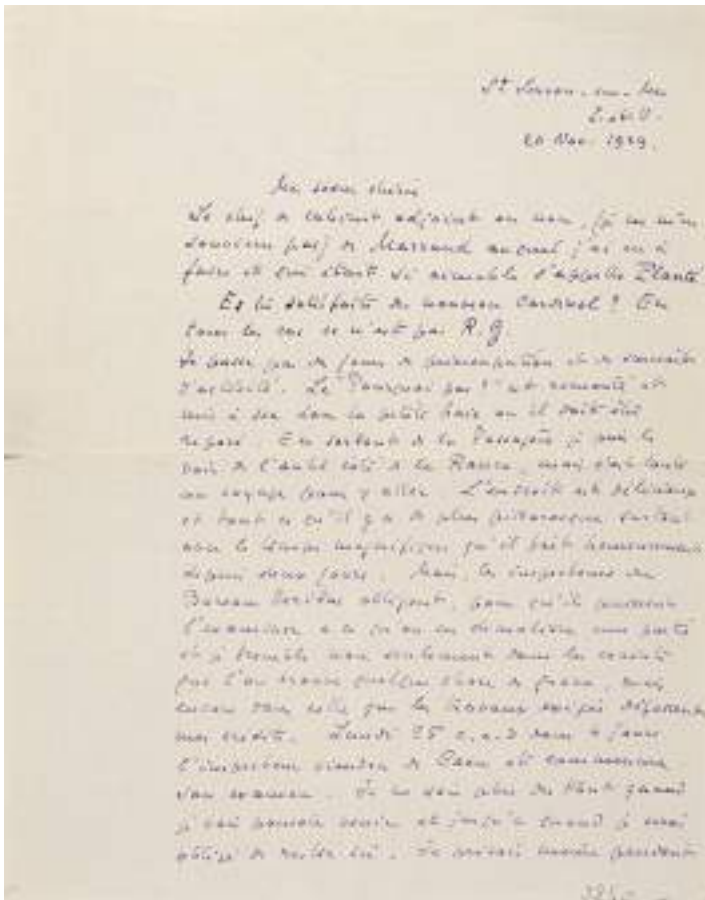 St Servan-sur-Mer
I. et V.
20 Nov. 1929.
Ma soeur chérie
Le chef de cabinet adjoint au nom, (je ne m'en
souviens pas) de Marraud auquel j'ai eu à
faire et qui était si aimable s'appelle Planté.
Es tu satisfaite du nouveau Cardinal ? En
tous les cas ce n'est pas R. G
Je passe par des jours de préoccupation et de
d'activité. Le "Pourquoi pas ?" est remonté et
mis à sec dans la petite baie où il doit être
réparé. En sortant de la Passagère je puis le
voir de l'autre côté de la Rance, mais c'est toute
un voyage pour y aller. L'endroit est délicieux
et tout ce qu'il y a de plus pittoresque surtout
avec le temps magnifique qu'il fait heureusement
depuis deux jours. Mais, les inspecteurs du
Bureau Veritas obligent, pour qu'ils puissent
l'examiner à ce qu'on en démolisse une partie
et je tremble non seulement dans la crainte
que l'on trouve quelque chose de grave, mais
encore dans celle que les travaux exigés dépassent
mes crédits. Lundi 25 c.a.d dans 4 jours
l'inspecteur viendra de Caen et commencera
son examen. Je ne sais plus du tout quand
je vais pouvoir venir et jusqu'à quand je serai
obligé de rester ici. Je